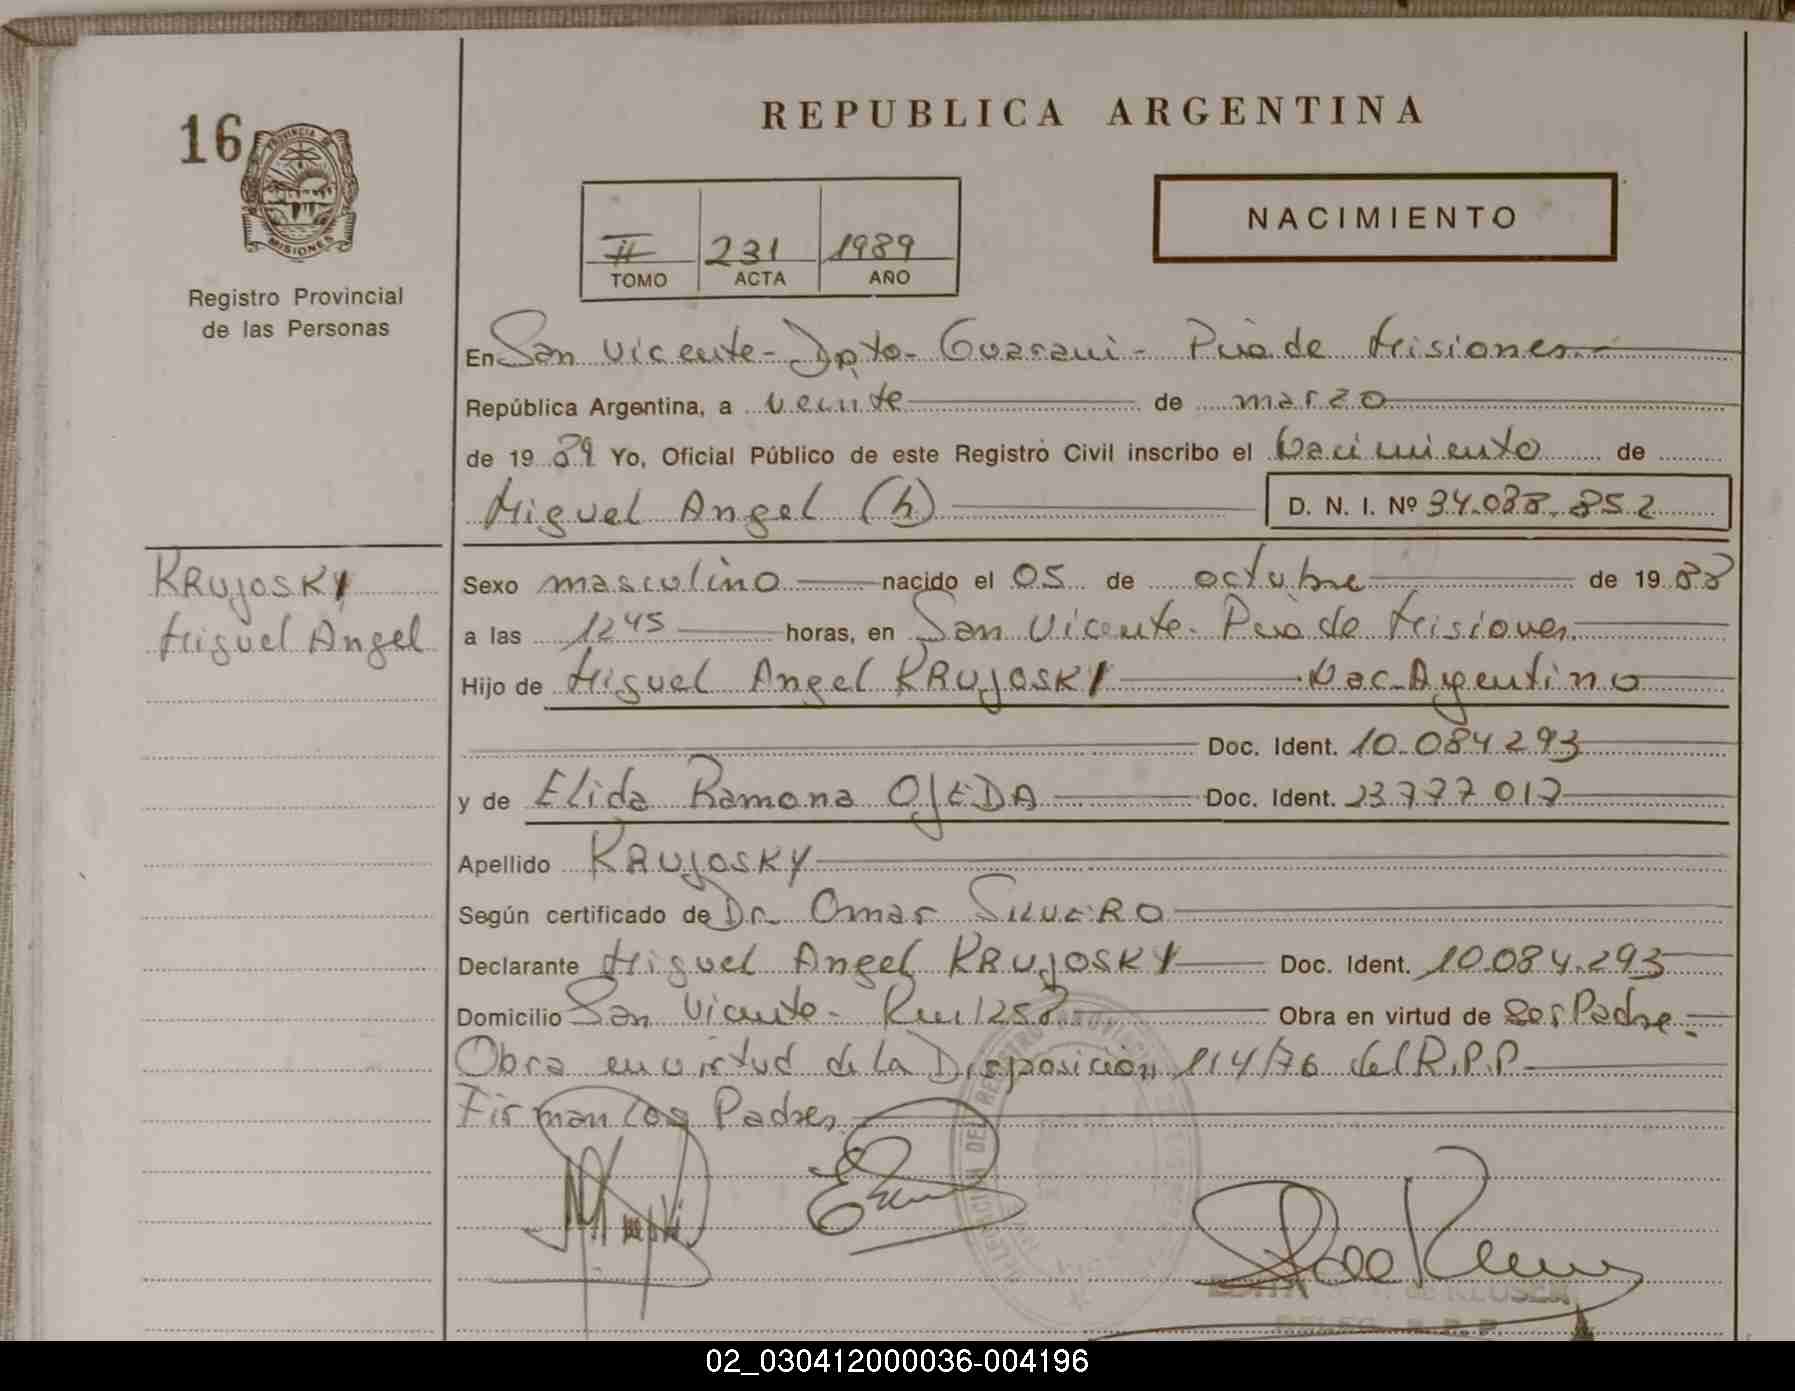 REPUBLICA ARGENTINA
16
PROVINCIA DE
MISIONES
Registro Provincial
de las Personas
NACIMIENTO
II 231 1989
TOMO ACTA AÑO
En San Vicente - Dpto - Guarani - Pcia de Misiones
República Argentina, a veinte de marzo
de 1989 Yo, Oficial Público de este Registro Civil inscribo el Nacimiento de
Miguel Angel (h) D. N. I. Nº 34.088.852
KRUJOSKY
Miguel Angel
Sexo masculino nacido el 05 de octubre de 1988
a las 12 45 horas, en San Vicente - Pcia de Misiones
Hijo de Miguel Angel KRUJOSKY Nac. Argentino
Doc. Ident. 10.084.293
y de Elida Ramona OJEDA Doc. Ident. 23.777.017
Apellido KRUJOSKY
Según certificado de Dr. Omar SILVERO
Declarante Miguel Angel KRUJOSKY Doc. Ident. 10.084.293
Domicilio San Vicente - Km 1258 Obra en virtud de Ser Padre.
Obra en virtud de la Disposición 114/76 del R.P.P.
Firman los Padres.
de KLUSER
02_030412000036-004196